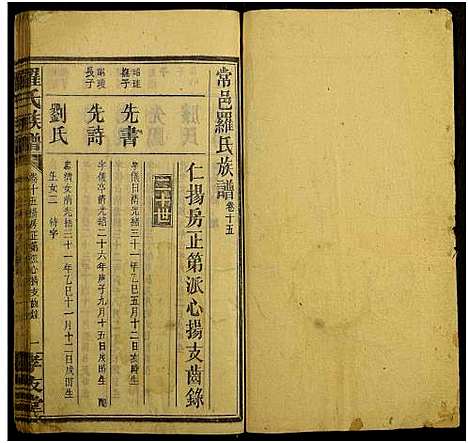 常邑羅氏族譜 卷十五
仁揚房正第派心揚支齒錄
二十世
先書
字儀日清光緒三十一年乙巳五月十二日亥時生
長子
先詩
字儀亭清光緒二十六年庚子九月十五日戌時生
劉氏
清光緒三十一年乙巳十一月十二日戌時生
生女二 待字
羅氏族譜
卷十五 揚房正第派心揚支齒錄
一
孝友堂